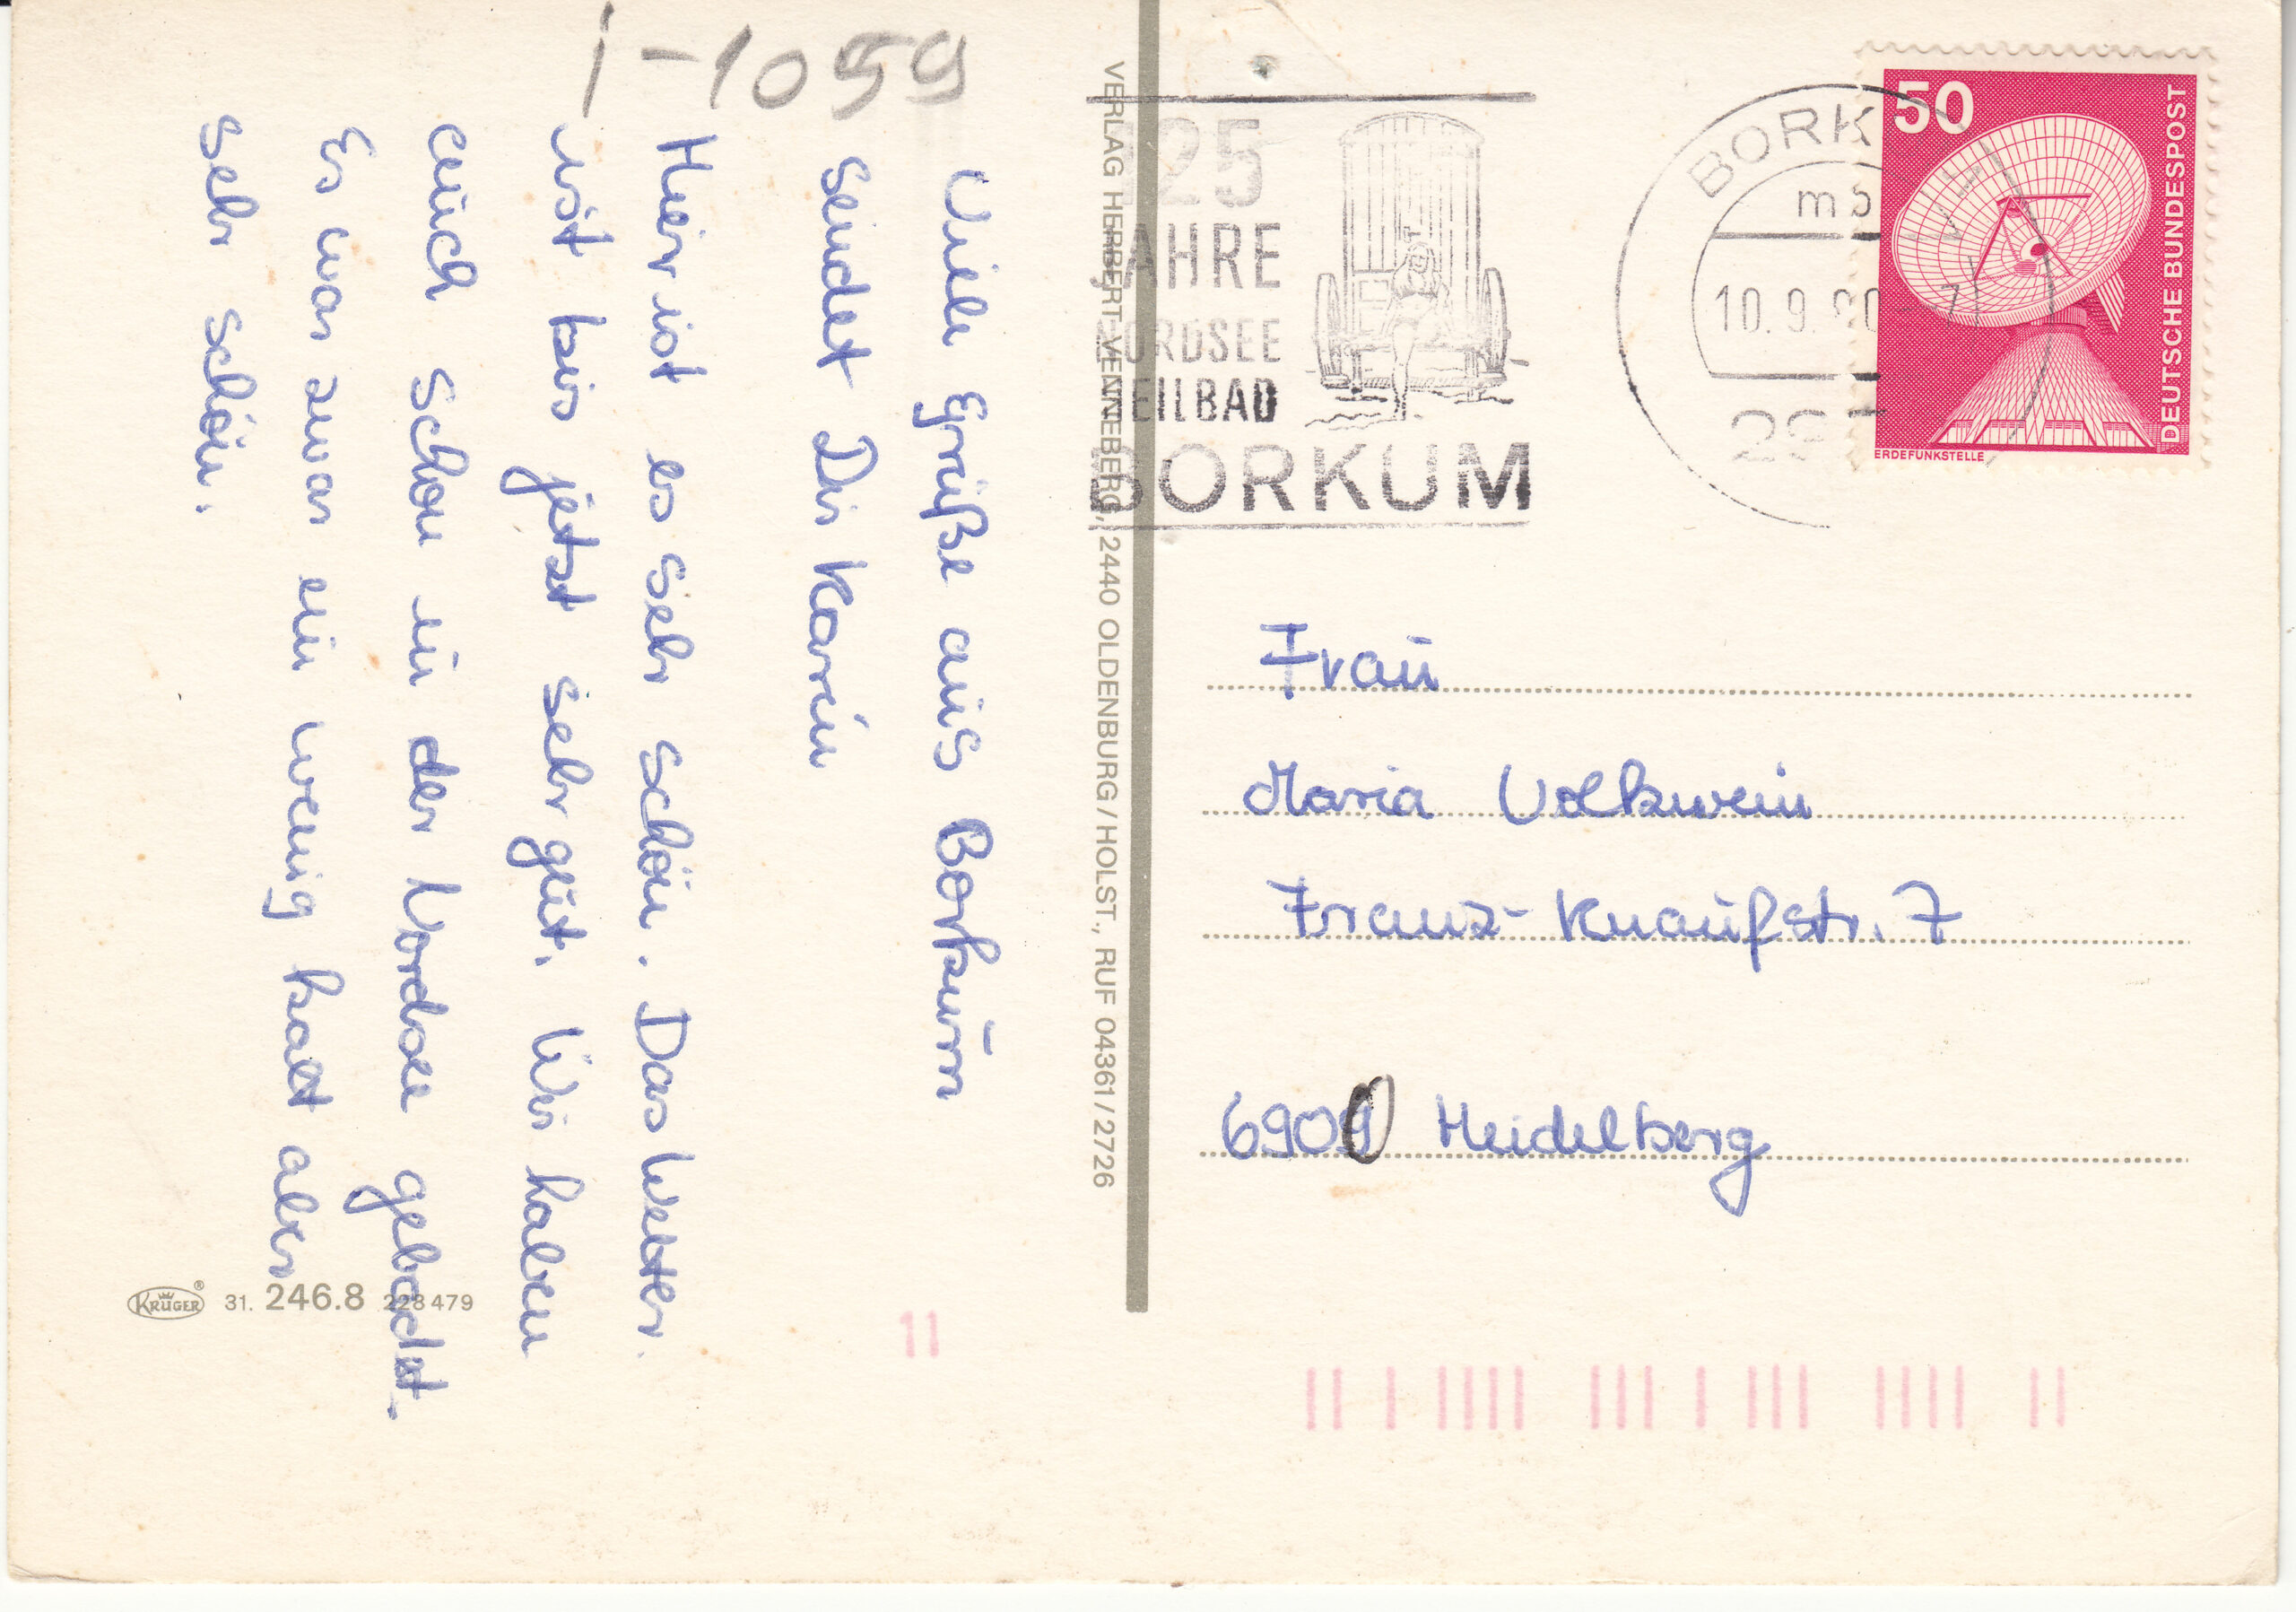 i-1059
Viele Grüße aus Borkum
sendet Dir Karin
Hier ist es sehr schön. Das Wetter
ist bis jetzt sehr gut. Wir haben
auch schon in der Nordsee gebadet.
Es war zwar ein wenig kalt aber
sehr schön.
KRÜGER® 31. 246.8 228 479
VERLAG HERBERT VENNEBERG, 2440 OLDENBURG/HOLST., RUF 04361/2726
125
JAHRE
NORDSEE
HEILBAD
BORKUM
BORKUM
10.9.
50
DEUTSCHE BUNDESPOST
ERDEFUNKSTELLE
Frau
Maria Volkwein
Franz-Knaufstr. 7
6900 Heidelberg